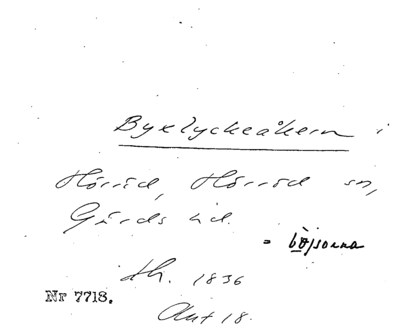 Byxlyckeåkern i
Hörröd, Hörröd sn,
Gärds hd.
= böjsorna
Lh. 1836
Akt 18.
Nr 7718.